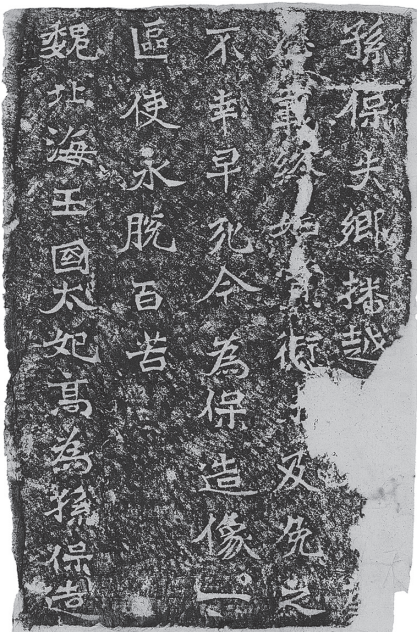 孫保失鄉播越
及免之
不幸早死今為保造像一
區使永脫百苦
魏北海王國太妃高為孫保造